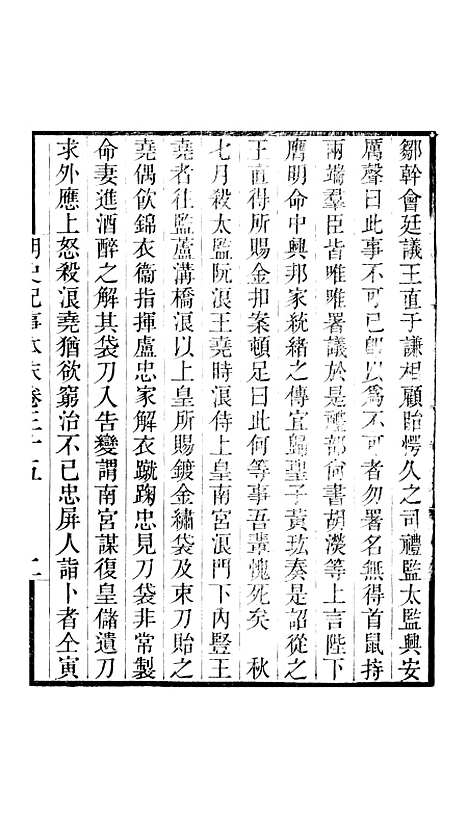 鄒幹會廷議王直于謙相顧眙愕久之司禮監太監興安
厲聲曰此事不可已卽以爲不可者勿署名無得首鼠持
兩端羣臣皆唯唯署議於是禮部尙書胡濙等上言陛下
膺明命中興邦家統緒之傳宜歸聖子黃竑奏是詔從之
王直得所賜金扣案頓足曰此何等事吾輩愧死矣　秋
七月殺太監阮浪王堯時浪侍上皇南宮浪門下內豎王
堯者往監蘆溝橋浪以上皇所賜鍍金繡袋及束刀貽之
堯偶飮錦衣衞指揮盧忠家解衣蹴踘忠見刀袋非常製
命妻進酒醉之解其袋刀入告變謂南宮謀復皇儲遺刀
求外應上怒殺浪堯猶欲窮治不已忠屛人詣卜者仝寅
明史紀事本末卷三十五　二